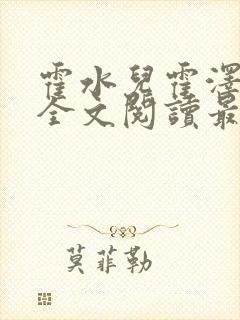 霍水兒霍澤
全文閱讀最
莫菲勒